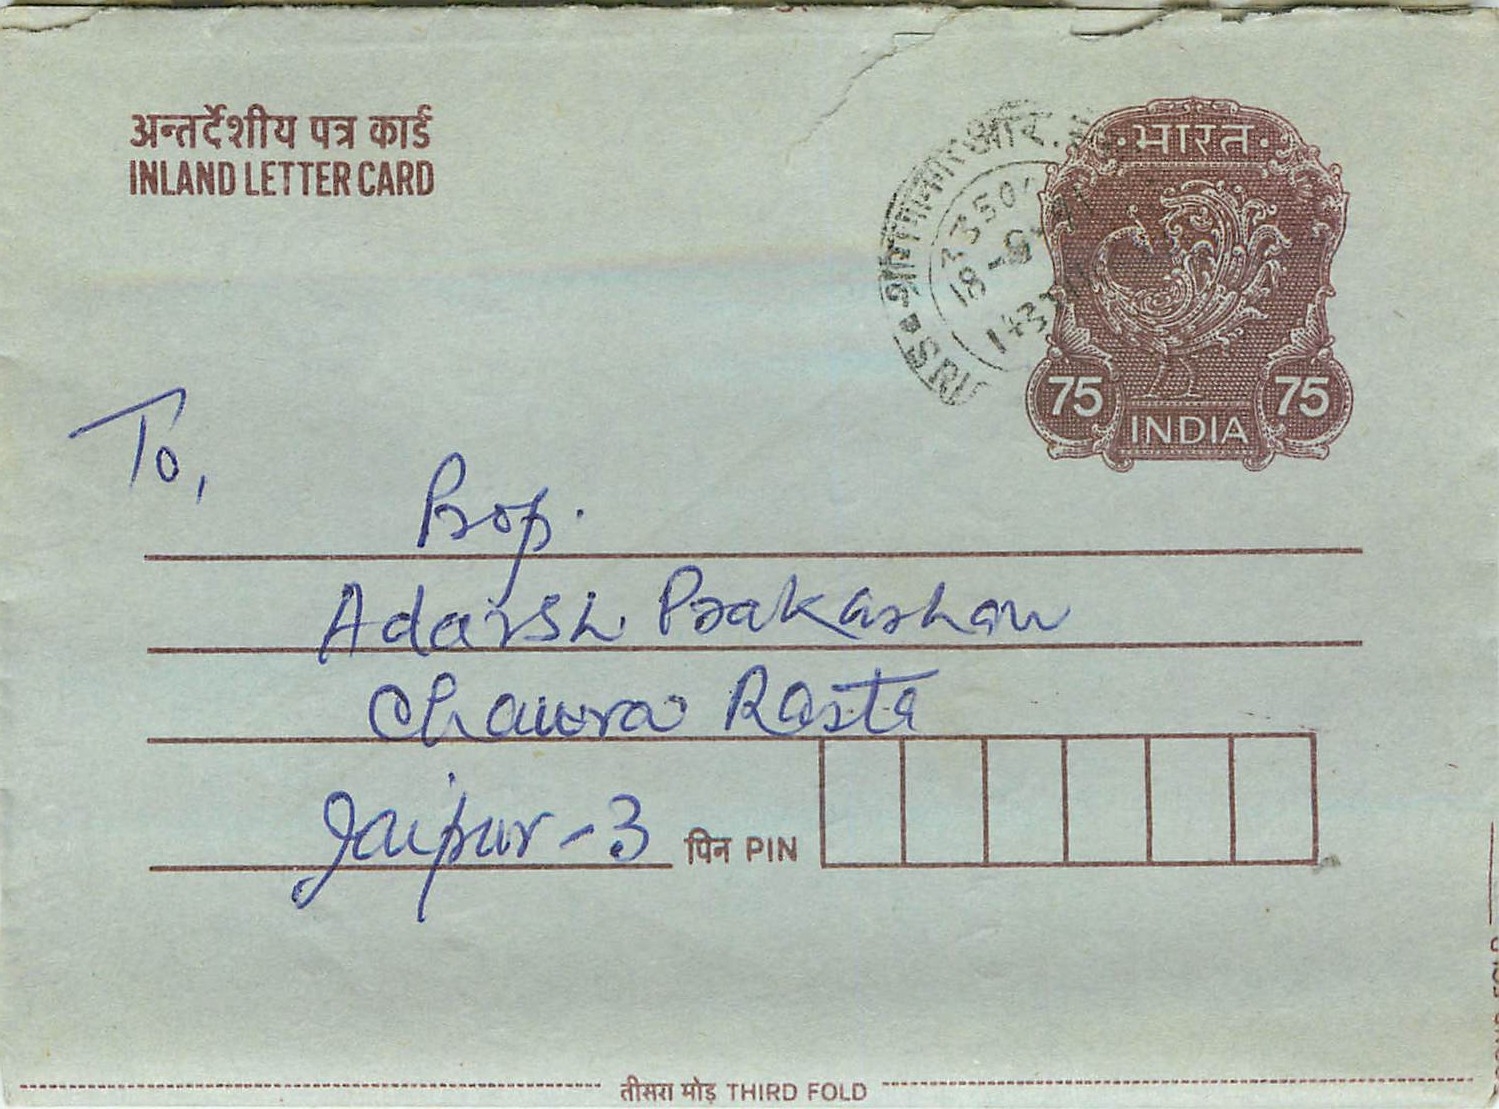 अन्तर्देशीय पत्र कार्ड
INLAND LETTER CARD
भारत
75 75
INDIA
To,
Prop.
Adarsh Prakashan
Chaura Rasta
Jaipur-3
पिन PIN
तीसरा मोड़ THIRD FOLD